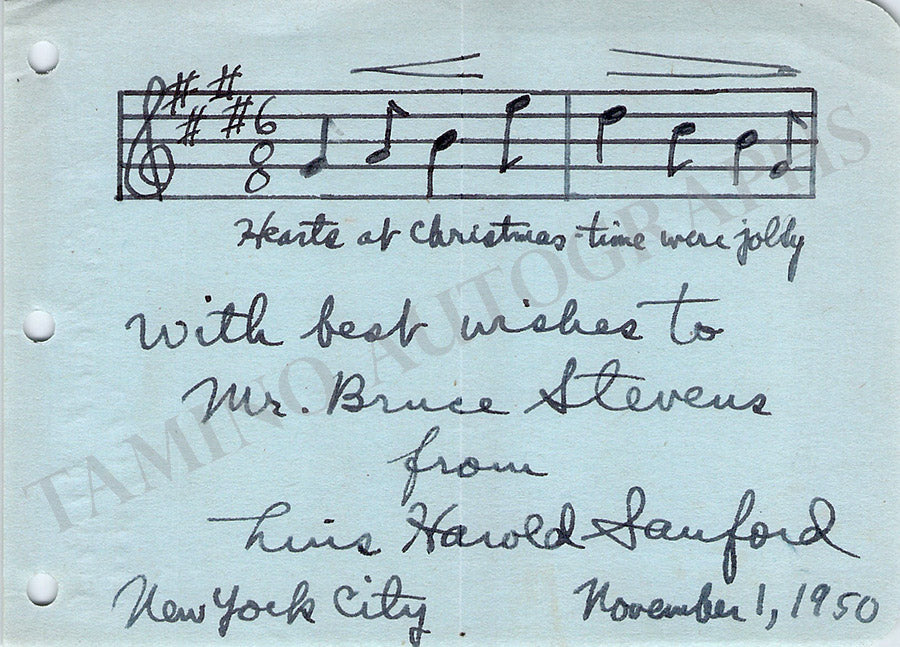 6
8
Hearts at Christmas-time were jolly
With best wishes to
Mr. Bruce Stevens
from
Luis Harold Sanford
New York City November 1, 1950
TAMINO AUTOGRAPHS